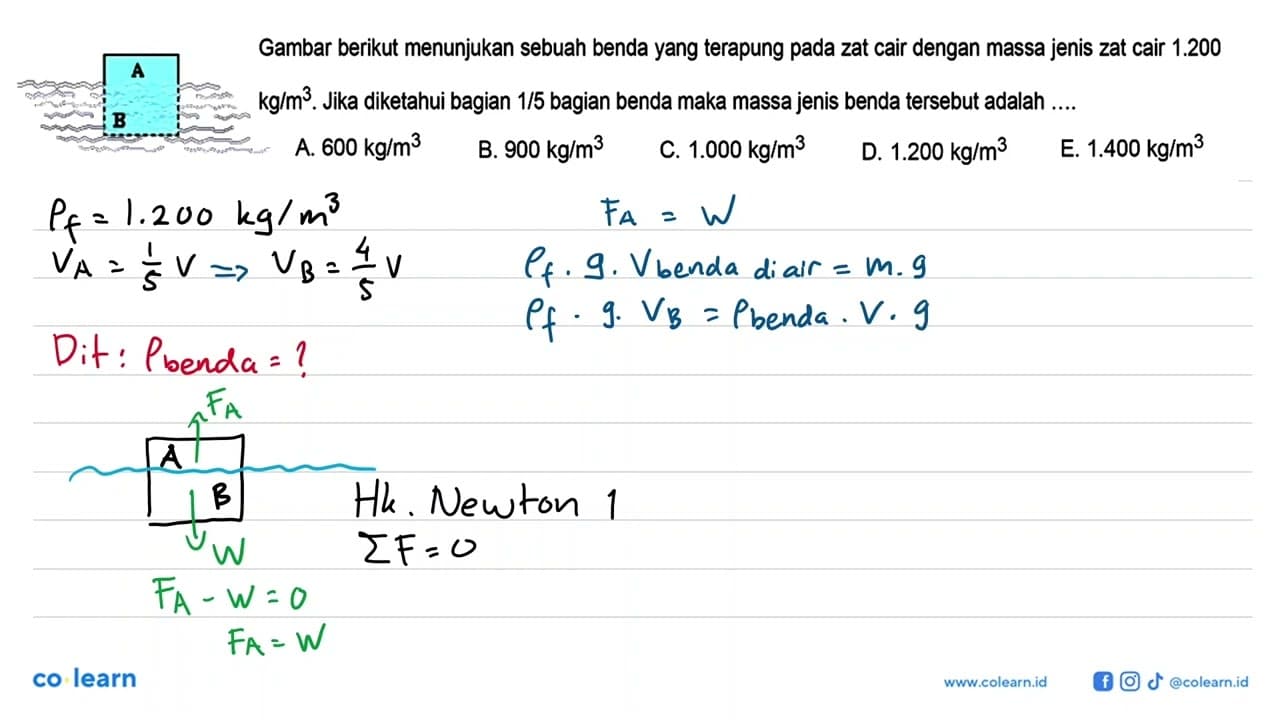 Gambar berikut menunjukan sebuah benda yang terapung pada zat cair dengan massa jenis zat cair 1.200
kg/m³. Jika diketahui bagian 1/5 bagian benda maka massa jenis benda tersebut adalah ....
A
B
A. 600 kg/m³ B. 900 kg/m³ C. 1.000 kg/m³ D. 1.200 kg/m³ E. 1.400 kg/m³
ρf = 1.200 kg/m³
VA = 1/5 V => VB = 4/5 V
Dit : ρbenda = ?
FA
A
B
W
FA - W = 0
FA = W
Hk. Newton 1
ΣF = 0
FA = W
ρf . g. Vbenda di air = m. g
ρf . g. VB = ρbenda . V. g
co·learn
www.colearn.id
@colearn.id